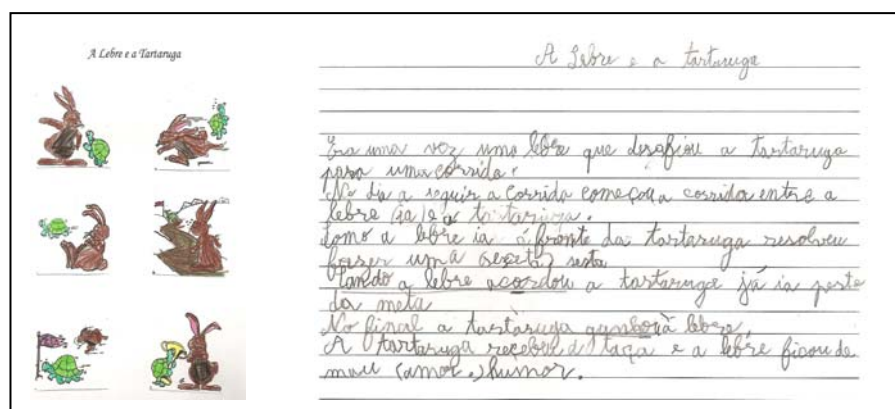 A Lebre e a Tartaruga
A Lebre e a tartaruga
Era uma vez uma lebre que desafiou a tartaruga
para uma corrida.
No dia a seguir a corrida começou a corrida entre a
lebre (ia) e a tartaruga.
Como a lebre ia á frente da tartaruga resolveu
faser uma (seesta) sesta
a lebre acordou a tartaruga já ia perto
da meta
No final a tartaruga ganhou à lebre.
A tartaruga recebeu a taça e a lebre ficou de
mau (amor.) humor.